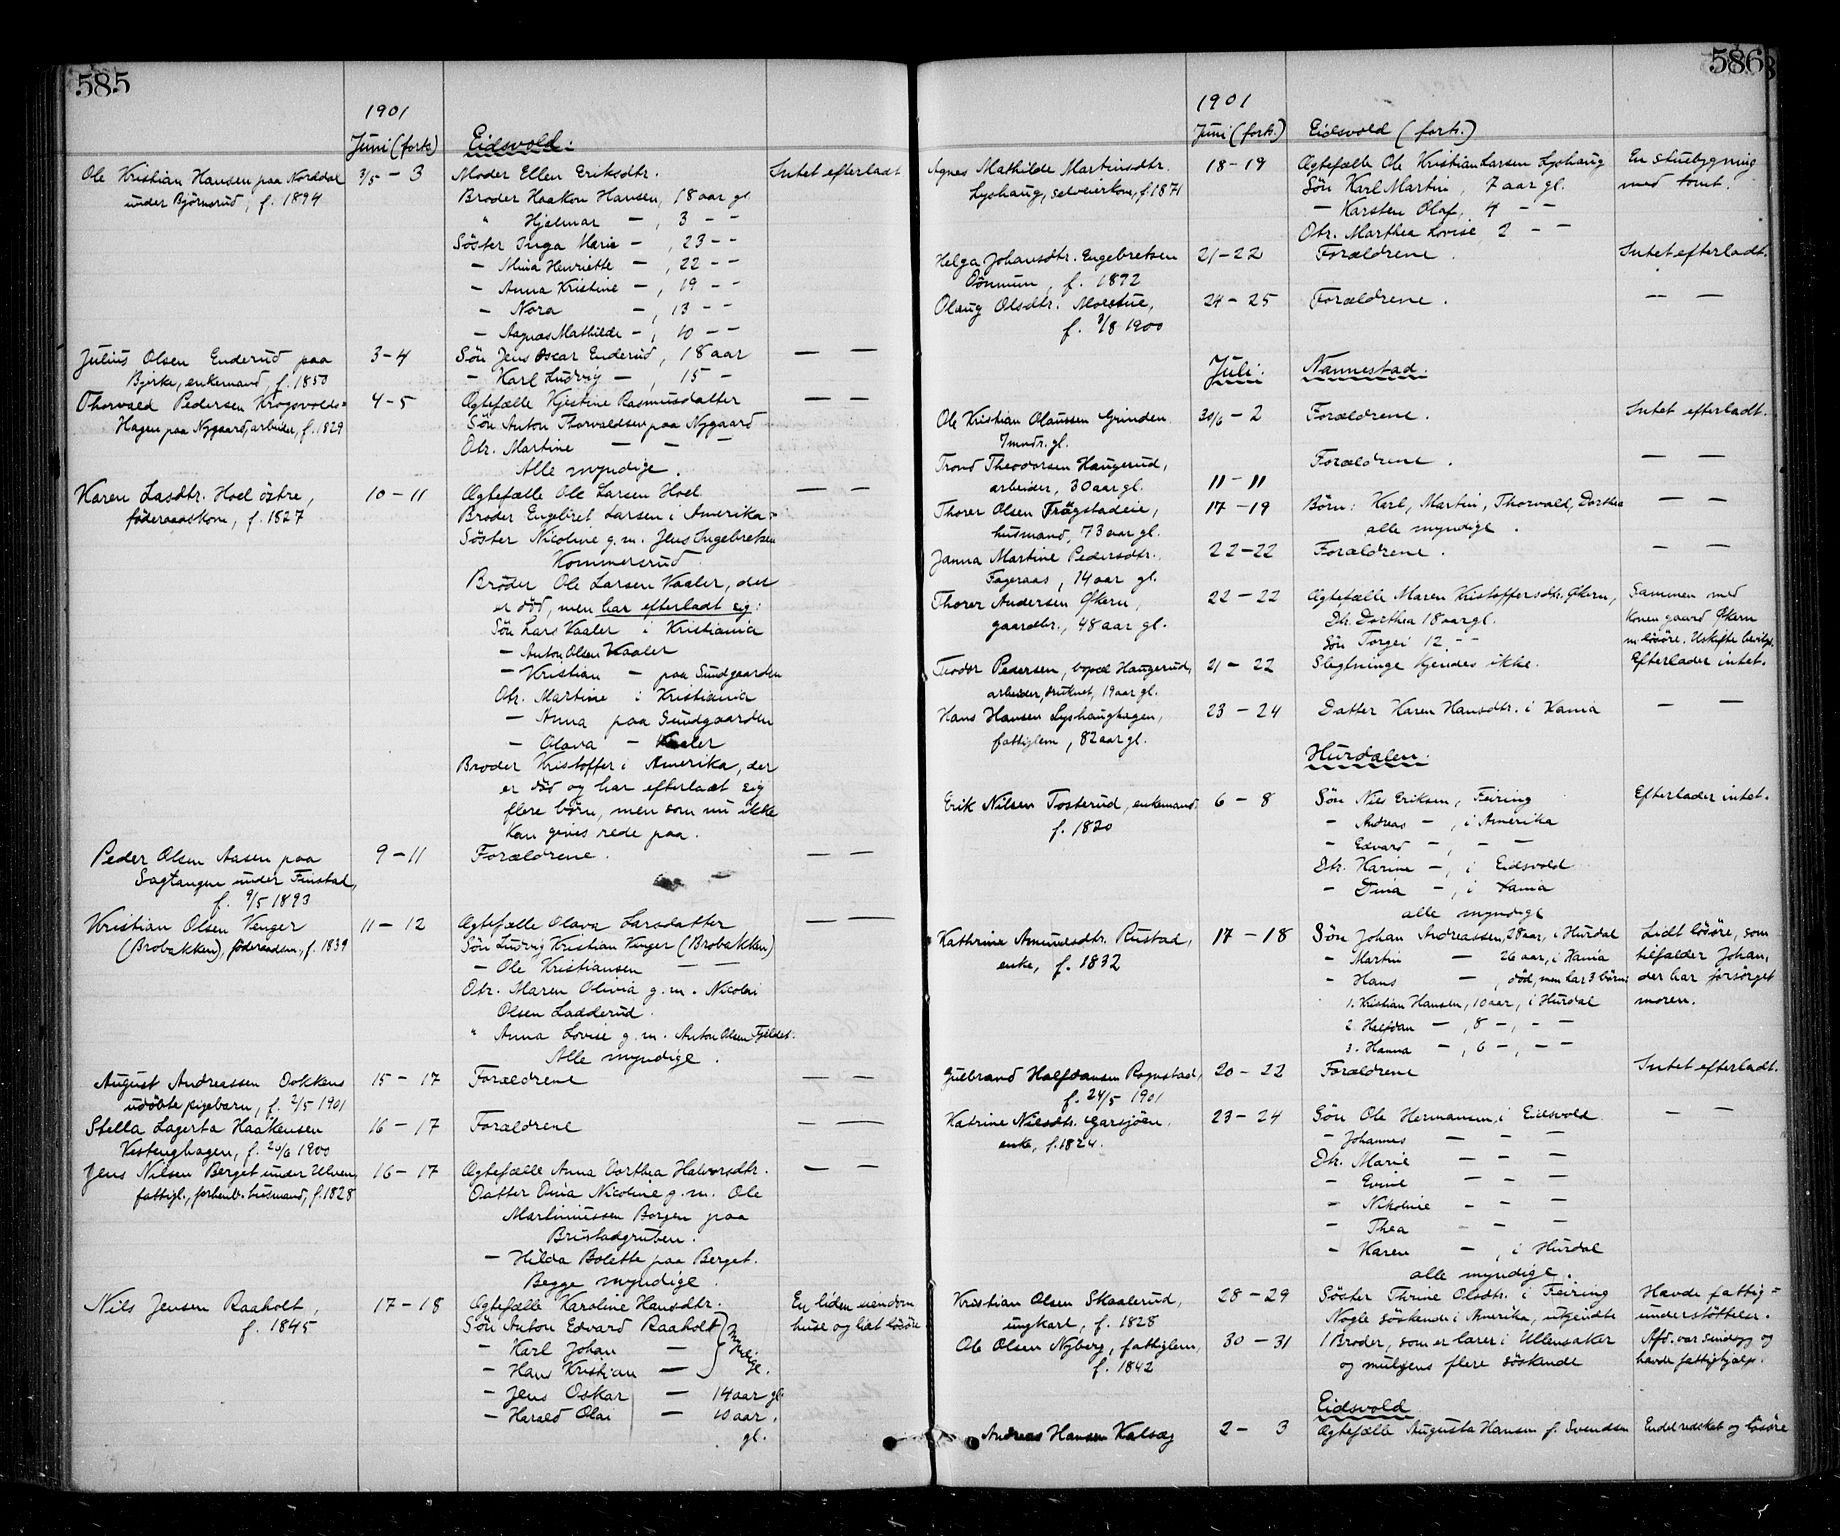 585
1901
Juni (forts)
Eidsvold:
Ole Kristian Hansen paa Norddal
under Björnsrud, f. 1894
3/5 - 3
Moder Ellen Eriksdtr.
Intet efterladt
Broder Haakon Hansen, 18 aar gl
" Hjelmar — , 3 - -
Söster Inga Marie — , 23 - -
— Mina Henriette — , 22 - -
— Anna Kristine — , 19 - -
— Nora — , 13 - -
— Aagnas Mathilde — , 10 - -
Julius Olsen Enderud paa
Bjerke, enkemand, f. 1850
3-4
Sön Jens Oscar Enderud, 18 aar
— Karl Ludvig — , 15 -
— —
Thorvald Pedersen Krogsvolds=
Hagen paa Nygaard, arbeider, f. 1829
4-5
Ægtefælle Kjestine Rasmusdatter
Sön Anton Thorvaldsen paa Nygaard
Dtr. Martine — — —
Alle myndige.
— —
Karen Lasdtr. Hoel östre,
föderaadskone, f. 1827
10-11
Ægtefælle Ole Larsen Hoel
Broder Engebret Larsen i Amerika
Söster Nicoline g. m. Jens Ingebretsen
Kommersrud.
Broder Ole Larsen Vaaler, der
er död, men har efterladt sig:
Sön Lars Vaaler i Kristiania
— Anton Olsen Vaaler
— Kristian — paa Sundgaarden
Dtr. Martine i Kristiania
— Anna paa Sundgaarden
— Olava — Vaaler
Broder Kristoffer i Amerika, der
er död og har efterladt sig
flere börn, men som nu ikke
kan gives rede paa.
— —
Peder Olsen Aasen paa
Sagtangen under Finstad,
f. 9/5 1893
9-11
Forældrene.
— —
Kristian Olsen Venger
(Brobakken), föderaadsm., f. 1839
11-12
Ægtefælle Olava Larsdatter
Sön Ludvig Kristian Venger (Brobakken)
— Ole Kristiansen — —
Dtr. Maren Olivia g. m. Nicolai
Olsen Ladderud.
" Anna Lovise g. m. Anton Olsen Fjeldet.
Alle myndige.
— —
August Andreassen Dokkens
udöbte pigebarn, f. 2/5 1901
15-17
Forældrene
— —
Stella Lagerta Haakensen
Vestenghagen, f. 20/6 1900
16-17
Forældrene
— —
Jens Nilsen Berget under Ulven
fattigl., forhenv. husmand, f. 1828
16-17
Ægtefælle Anna Dorthea Halvorsdtr.
Datter Dina Nicoline g. m. Ole
Martiniussen Borgen paa
Brustadgruben.
— Hilda Bolette paa Berget.
Begge myndige.
— —
Nils Jensen Raaholt,
f. 1845
17-18
Ægtefælle Karoline Hansdtr.
Sön Anton Edvard Raaholt
— Karl Johan —
— Hans Kristian —
— Jens Oskar — 14 aar gl
— Harald Olai — 10 aar
gl.
En liden eiendom
huse og lidt lösöre
586
1901
Juni (forts.)
Eidsvold (forts.)
Agnes Mathilde Martinsdtr.
Lyshaug, selveierkone, f. 1871
18-19
Ægtefælle Ole Kristian Larsen Lyshaug
Sön Karl Martin, 7 aar gl.
— Karsten Olaf, 4 - -
Dtr. Marthea Lovise 2 - -
En stuebygning
med tomt.
Helga Johansdtr. Engebretsen
Dönnum, f. 1892
21-22
Forældrene.
Intet efterladt.
Olaug Olsdtr. Morstue,
f. 3/8 1900
24-25
Forældrene.
— —
Juli:
Nannestad:
Ole Kristian Olaussen Grinden
7 mndr. gl.
30/6 - 2
Forældrene.
Intet efterladt.
Trond Theodorsen Haugerud,
arbeider, 30 aar gl.
11-11
Forældrene.
— —
Thorer Olsen Frögstadeie,
husmand, 73 aar gl.
17-19
Börn: Karl, Martin, Thorvald, Dorthea
alle myndige.
— —
Janna Martine Pedersdtr.
Fageraas, 14 aar gl.
22-22
Forældrene.
— —
Thorer Andersen Økern,
gaardbr., 48 aar gl.
22-22
Ægtefælle Maren Kristoffersdtr. Økern,
Dtr. Dorthea 18 aar gl.
Sön Torgei 12 - -
Sammen med
konen gaard Økern
m. lösöre. Uskifte bevilg.
Teodor Pedersen, Haugerud,
arbeider, druknet, 19 aar gl.
21-22
Slegtninge kjendes ikke.
Efterlader intet.
Hans Hansen Lyshaughagen,
fattiglem, 82 aar gl.
23-24
Datter Karen Hansdtr. i Kania
— —
Hurdalen:
Erik Nilsen Tosterud, enkemand
f. 1820
6-8
Sön Nils Eriksen, Feiring
— Andreas — , i Amerika
— Edvard — , — —
Dtr. Karine — , i Eidsvold
— Dina — , i Kania
alle myndige
Efterlader intet.
Kathrine Amundsdtr. Rustad,
enke, f. 1832
17-18
Sön Johan Andreassen, 28 aar, i Hurdal
— Martin — 26 aar, i Kania
— Hans — , död, men har 3 börn:
1. Kristian Hansen, 10 aar, i Hurdal
2. Halfdan — , 8 — , — —
3. Hanna — , 6 — , — —
Lidt lösöre, som
tilfalder Johan,
der har forsörget
moren.
Gulbrand Halfdansen Rognstad,
f. 24/5 1901
20-22
Forældrene
Intet efterladt.
Katrine Nilsdtr. Garsjöen,
enke, f. 1824.
23-24
Sön Ole Hermansen, i Eidsvold
— Johannes — — —
Dtr. Marie — — —
— Evine — — —
— Nikoline — — —
— Thea — — —
— Karen — , i Hurdal
alle myndige.
— —
Kristian Olsen Skaalerud,
ungkarl, f. 1828
28-29
Söster Thrine Olsdtr. i Feiring
Nogle söskende i Amerika, ukjendte
Havde fattig=
understöttelse.
Ole Olsen Nyberg, fattiglem,
f. 1842
30-31
1 Broder, som er lærer i Ullensaker
og muligens flere söskende
Afd. var sindsyg og
havde fattighjælp.
Eidsvold
Andreas Hansen Kalsæg
2- 3
Ægtefælle Augusta Hansen f. Svendsen
Endel redskab og lösöre